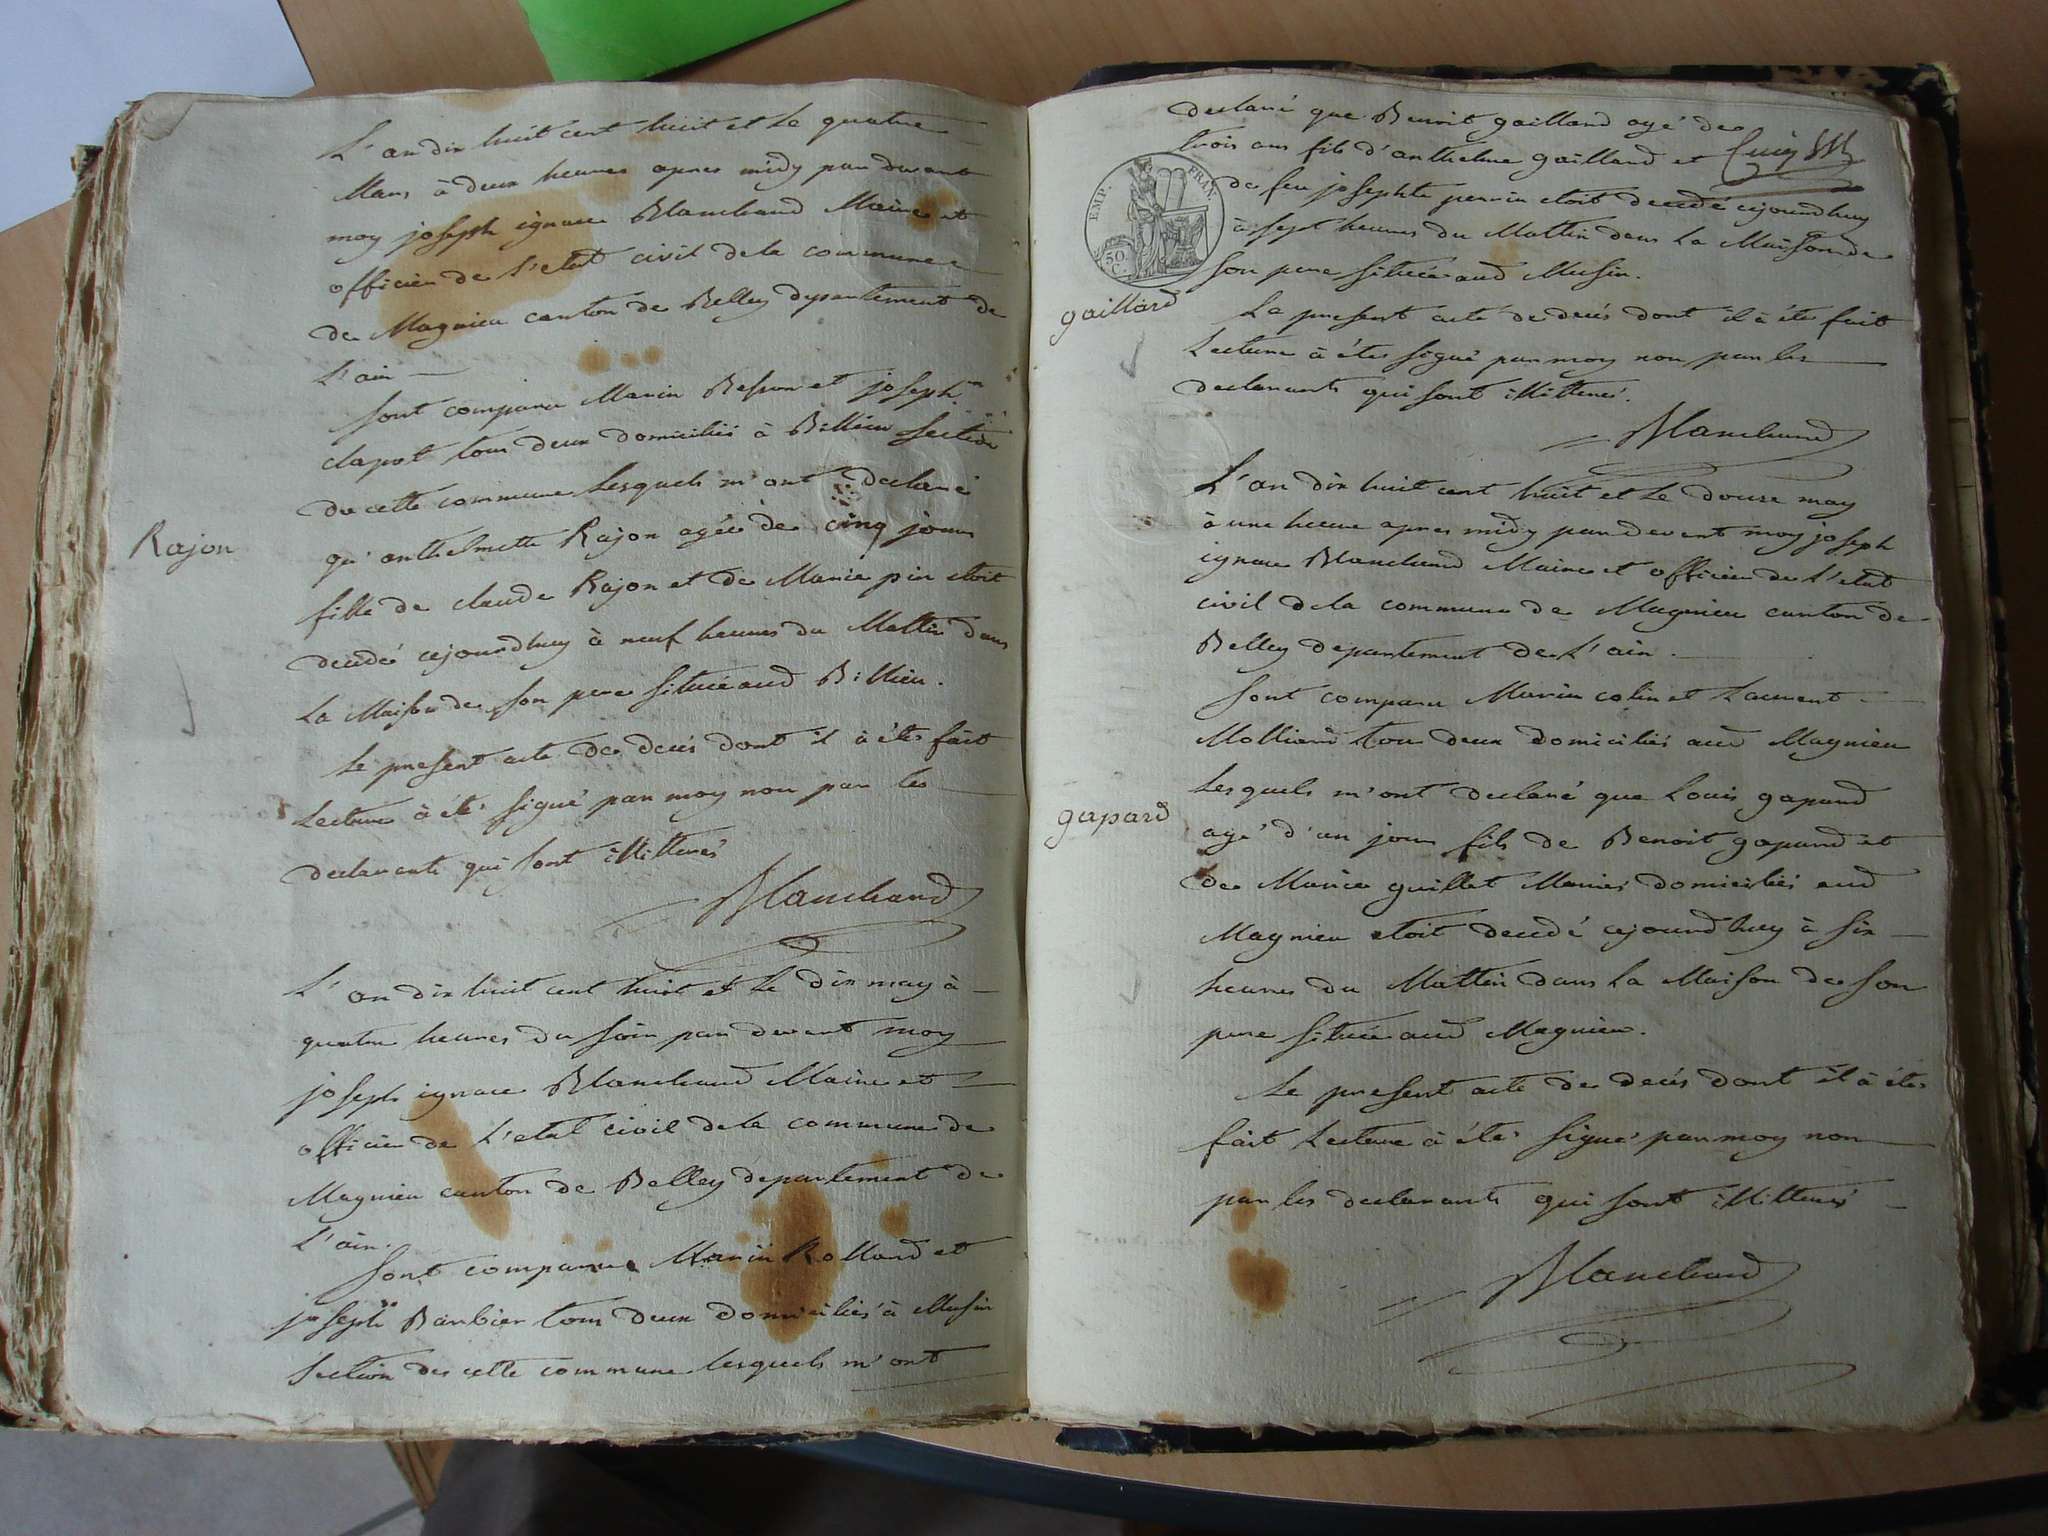 L'an dix huit cent huit et le quatre
Mars à deux heures apres midy par devant
moy joseph ignace Blanchand Maire et
officier de L'etat civil de la commune
de Magnieu canton de Belley departement de
L'ain
Sont comparu Marin et joseph
clapot tous deux domiciliés à Billieu Section
de cette commune Lesquels m'ont declaré
qu'anthelmette Rajon agée de cinq jours
fille de claude Rajon et de Marie pin etoit
decedé cejourdhuy à neuf heures du Mattin dans
La Maison de son pere Située aud Billieu.
Le present acte de decés dont il à étés fait
Lecture à étés signé par moy non par les
declarants qui sont illitterés
Blanchand
Rajon
L'an dix huit cent huit et Le dix may à
quatre heures du soir par devant moy
joseph ignace Blanchand Maire et
officier de L'etat civil de la commune de
Magnieu canton de Belley departement de
L'ain.
Sont comparu Marin Rolland et
joseph Barbier tous deux domiciliés à Musin
Section de cette commune lesquels m'ont
declaré que Benoit gaillard agé de
trois ans fils d'anthelme gaillard et
de feu josephte perrin etoit decedé cejourdhuy
à sept heures du Mattin dans La Maison de
son pere Située aud Musin.
EMP. FRAN.
50 C.
gaillard
Le present acte de decés dont il à étés fait
Lecture à étés signé par moy non par les
declarants qui sont illitterés.
Blanchand
L'an dix huit cent huit et Le douze may
à une heure apres midy par devant moy joseph
ignace Blanchand Maire et officier de L'etat
civil de la commune de Magnieu canton de
Belley departement de L'ain.
Sont comparu Marin colin et Laurent
Molliard tou deux domiciliés aud Magnieu
Lesquels m'ont declaré que Louis gapard
agé d'un jour fils de Benoit gapard et
de Marie guillet Mariés domiciliés aud
Magnieu etoit decedé cejourdhuy à six
heures du Mattin dans La Maison de son
pere Située aud Magnieu.
gapard
Le present acte de decés dont il à étés
fait Lecture à étés signé par moy non
par les declarants qui sont illitterés
Blanchand